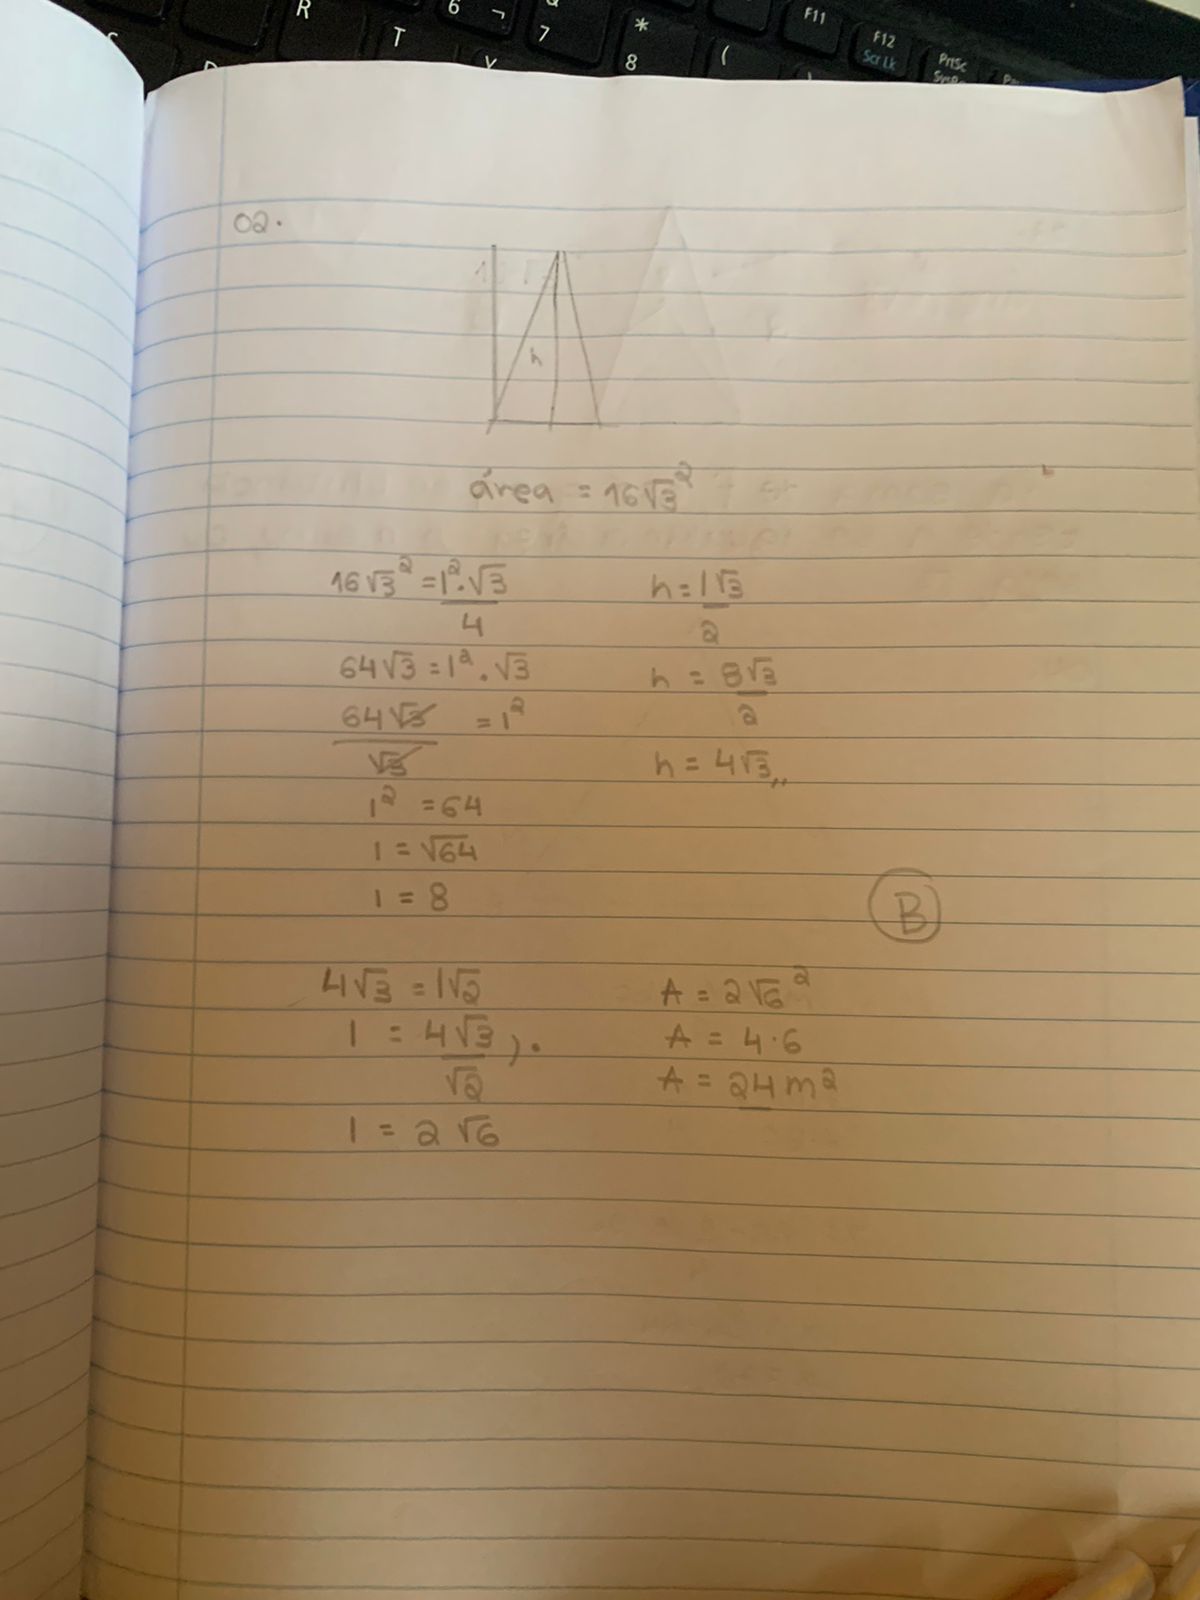 R
T
6 ¬
7
*
8
(
F11
F12
Scr Lk
PrtSc
02.
h
área = 16√3²
16√3² = l².√3
4
64√3 = l².√3
64√3 = l²
√3
l² = 64
l = √64
l = 8
h = l√3
2
h = 8√3
2
h = 4√3,,
B
4√3 = l√2
l = 4√3 ).
√2
l = 2√6
A = 2√6²
A = 4.6
A = 24 m²